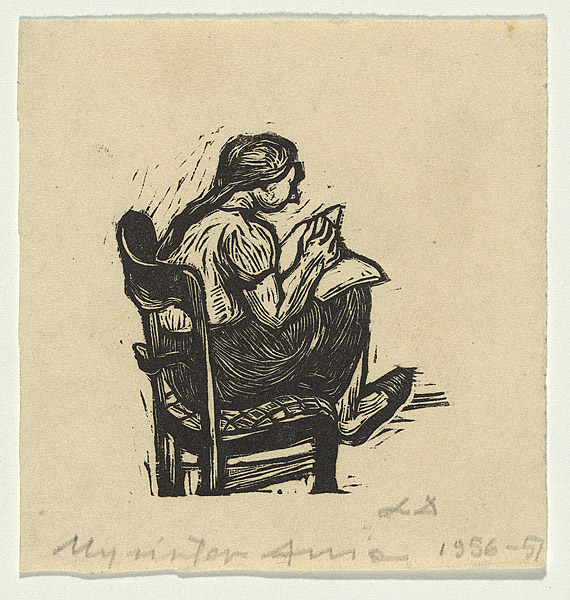 LD
My sister Ania 1956-57